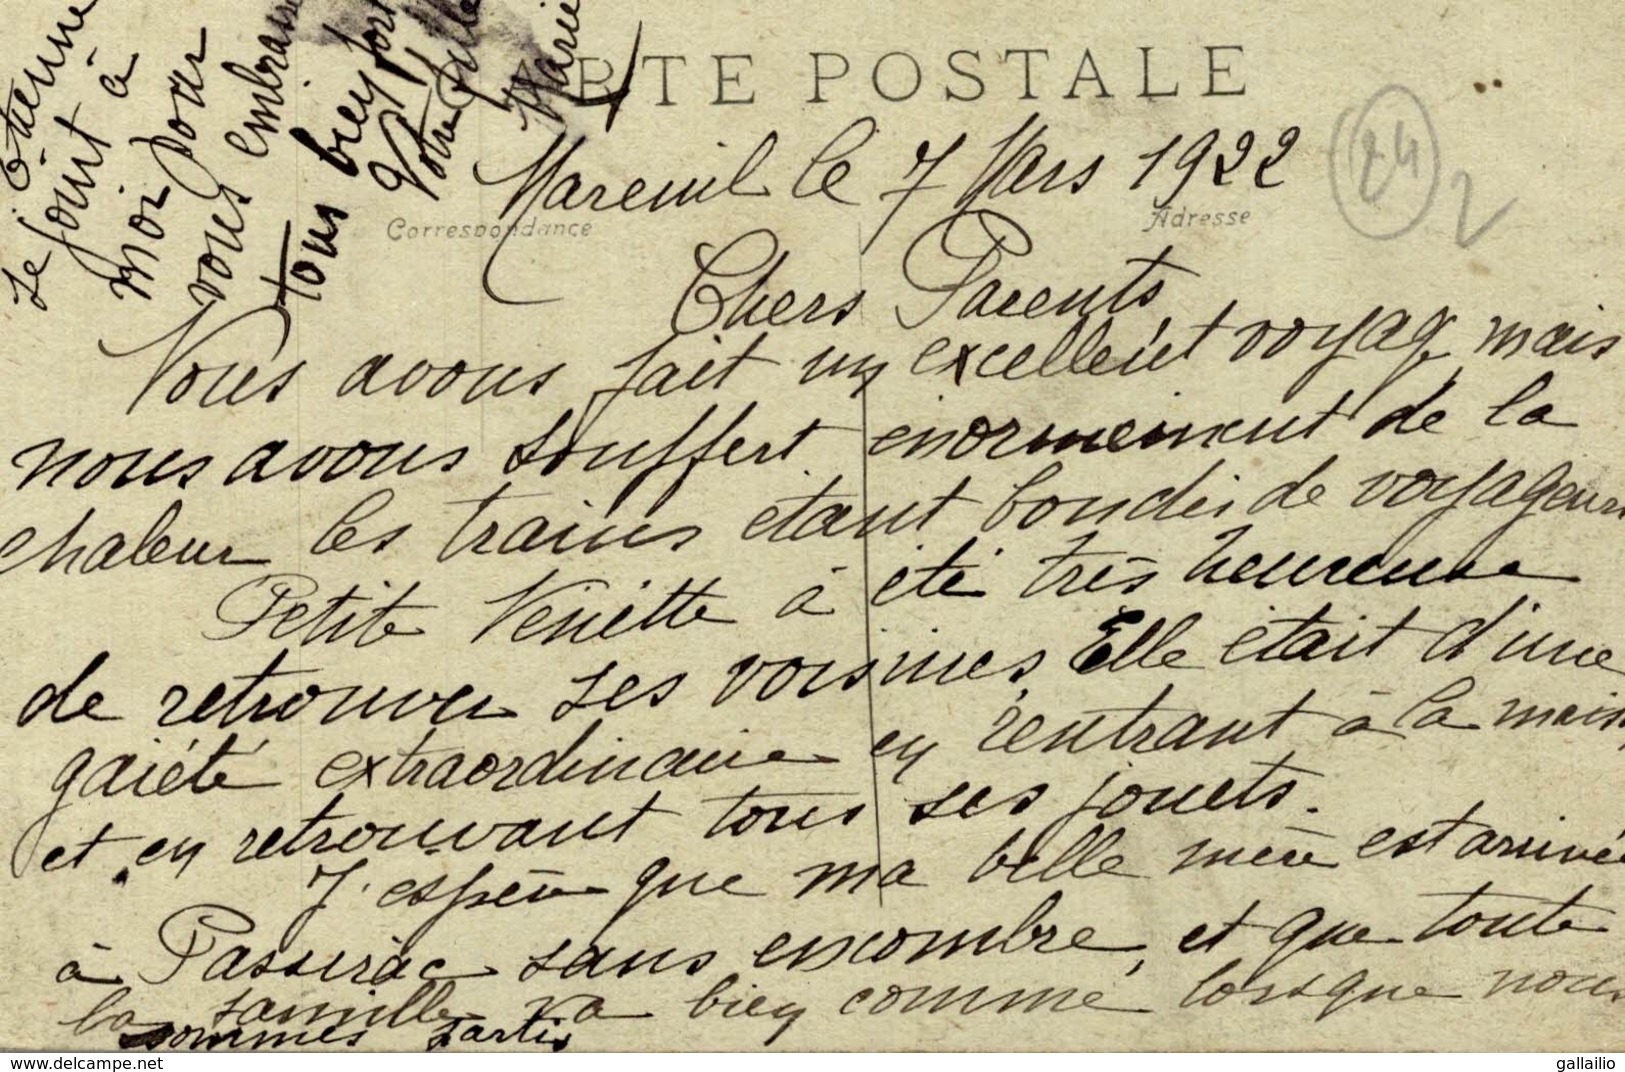 CARTE POSTALE
Correspondance
Adresse
24
2
Mareuil le 7 Mars 1922
Chers Parents
Nous avons fait un excellent voyag, mais
nous avons souffert enormement de la
chaleur les trains etant bondés de voyageurs
Petite à été très heureuse
de retrouver ses voisines, Elle était d'une
gaiété extraordinaire en rentrant à la mais
et en retrouvant tous ses jouets.
J'espère que ma belle mère est arrivée
à Passirac sans encombre, et que toute
la famille va bien comme lorsque nous
sommes partis
Etienne
se joint à
moi pour
vous embrasser
tous bien fort
Votre fille
Marie
gallailio
www.delcampe.net